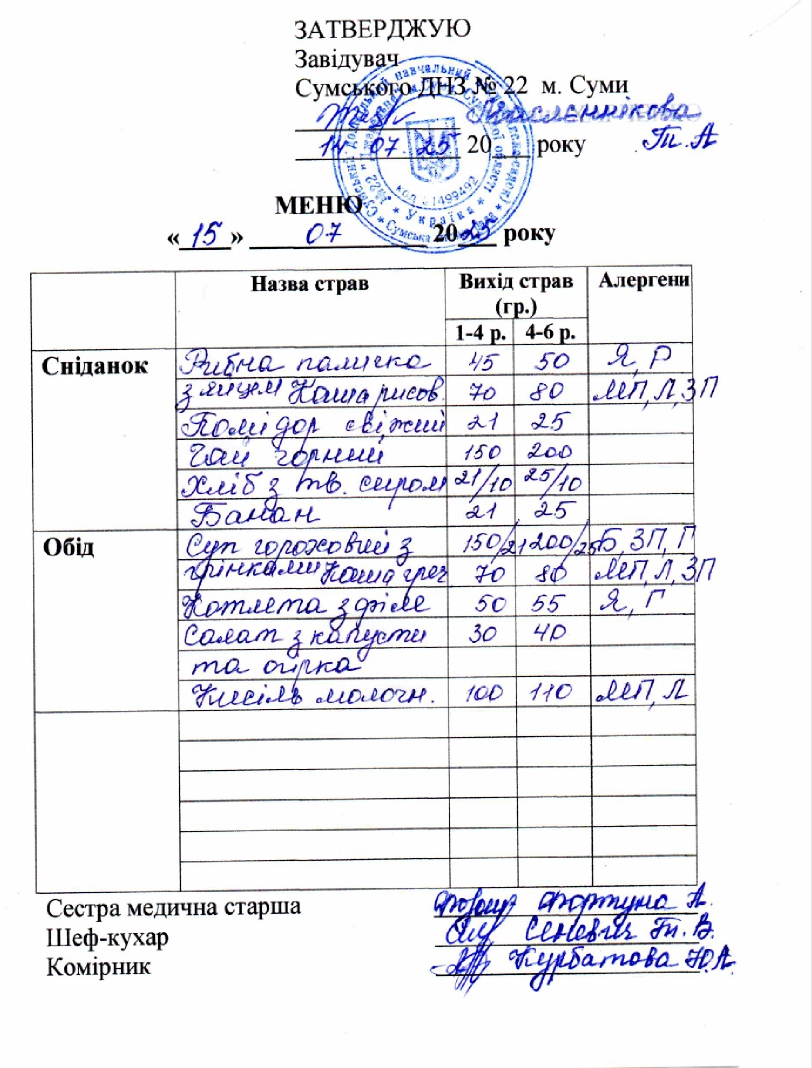 ЗАТВЕРДЖУЮ
Завідувач
Сумського ДНЗ № 22 м. Суми
Масленнікова
14 07 25 20___ року Т. А
МЕНЮ
« 15 » 07 2025 року
Назва страв Вихід страв (гр.) Алергени
1-4 р. 4-6 р.
Сніданок Рибна паличка 45 50 Я, Р
з яйцем Каша рисов. 70 80 МП, Л, ЗП
Помідор свіжий 21 25
Чай чорний 150 200
Хліб з тв. сиром 21/10 25/10
Банан 21 25
Обід Суп гороховий з 150/21 200/25 Б, ЗП, Г
грінками Каша греч 70 80 МП, Л, ЗП
Котлета з філе 50 55 Я, Г
Салат з капусти 30 40
та огірка
Кисіль молочн. 100 110 МП, Л
Сестра медична старша Фортуна А.
Шеф-кухар Сеневич Т. В.
Комірник Курбатова Ю.А.